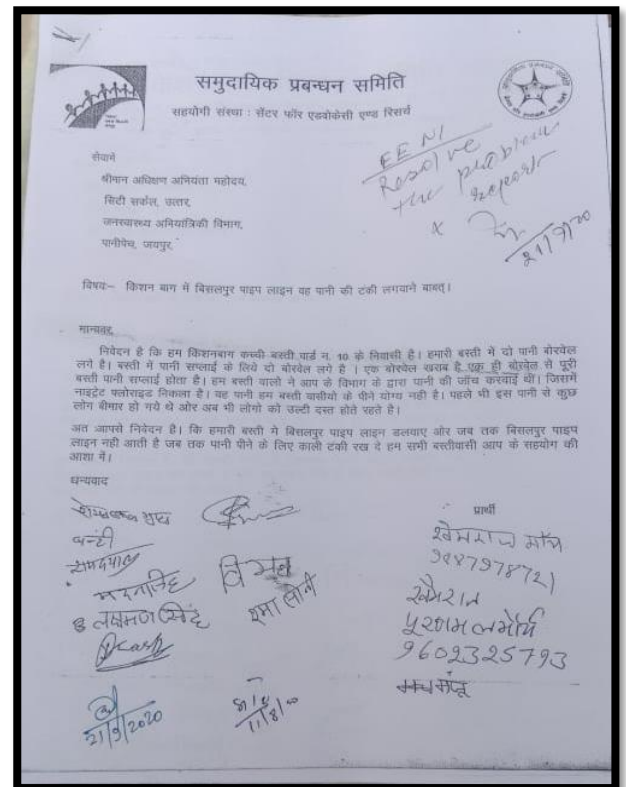 समुदायिक प्रबन्धन समिति
सहयोगी संस्था : सेंटर फॉर एडवोकेसी एण्ड रिसर्च
EE NI
Resolve
the problem
report
21/9/20
सेवामें
श्रीमान अधिक्षण अभियंता महोदय,
सिटी सर्कल, उत्तर,
जनस्वास्थ्य अभियांत्रिकी विभाग,
पानीपेच, जयपुर,
विषय:– किशन बाग में बिसलपुर पाइप लाइन वह पानी की टंकी लगयाने बाबत्।
मान्यवर,
निवेदन है कि हम किशनबाग कच्ची बस्ती वार्ड न. 10 के निवासी है। हमारी बस्ती में दो पानी बोरवेल
लगे है। बस्ती में पानी सप्लाई के लिये दो बोरवेल लगे है । एक बोरवेल खराब है एक ही बोरवेल से पूरी
बस्ती पानी सप्लाई होता है। हम बस्ती वालो ने आप के विभाग के द्वारा पानी की जाँच करवाई थीं। जिसमें
नाइट्रेट फ्लोराइड निकला है। यह पानी हम बस्ती वासीयो के पीने योग्य नही है। पहले भी इस पानी से कुछ
लोग बीमार हो गये थे ओर अब भी लोगो को उल्टी दस्त होते रहते है।
अत आपसे निवेदन है। कि हमारी बस्ती मे बिसलपुर पाइप लाइन डलवाए ओर जब तक बिसलपुर पाइप
लाइन नही आती है जब तक पानी पीने के लिए काली टंकी रख दे हम सभी बस्तीवासी आप के सहयोग की
आशा में।
धन्यवाद
प्रार्थी
बन्टी
रामदयाल
लक्ष्मण सिंह
विमल
खेमराज
9602325793
21/9/2020